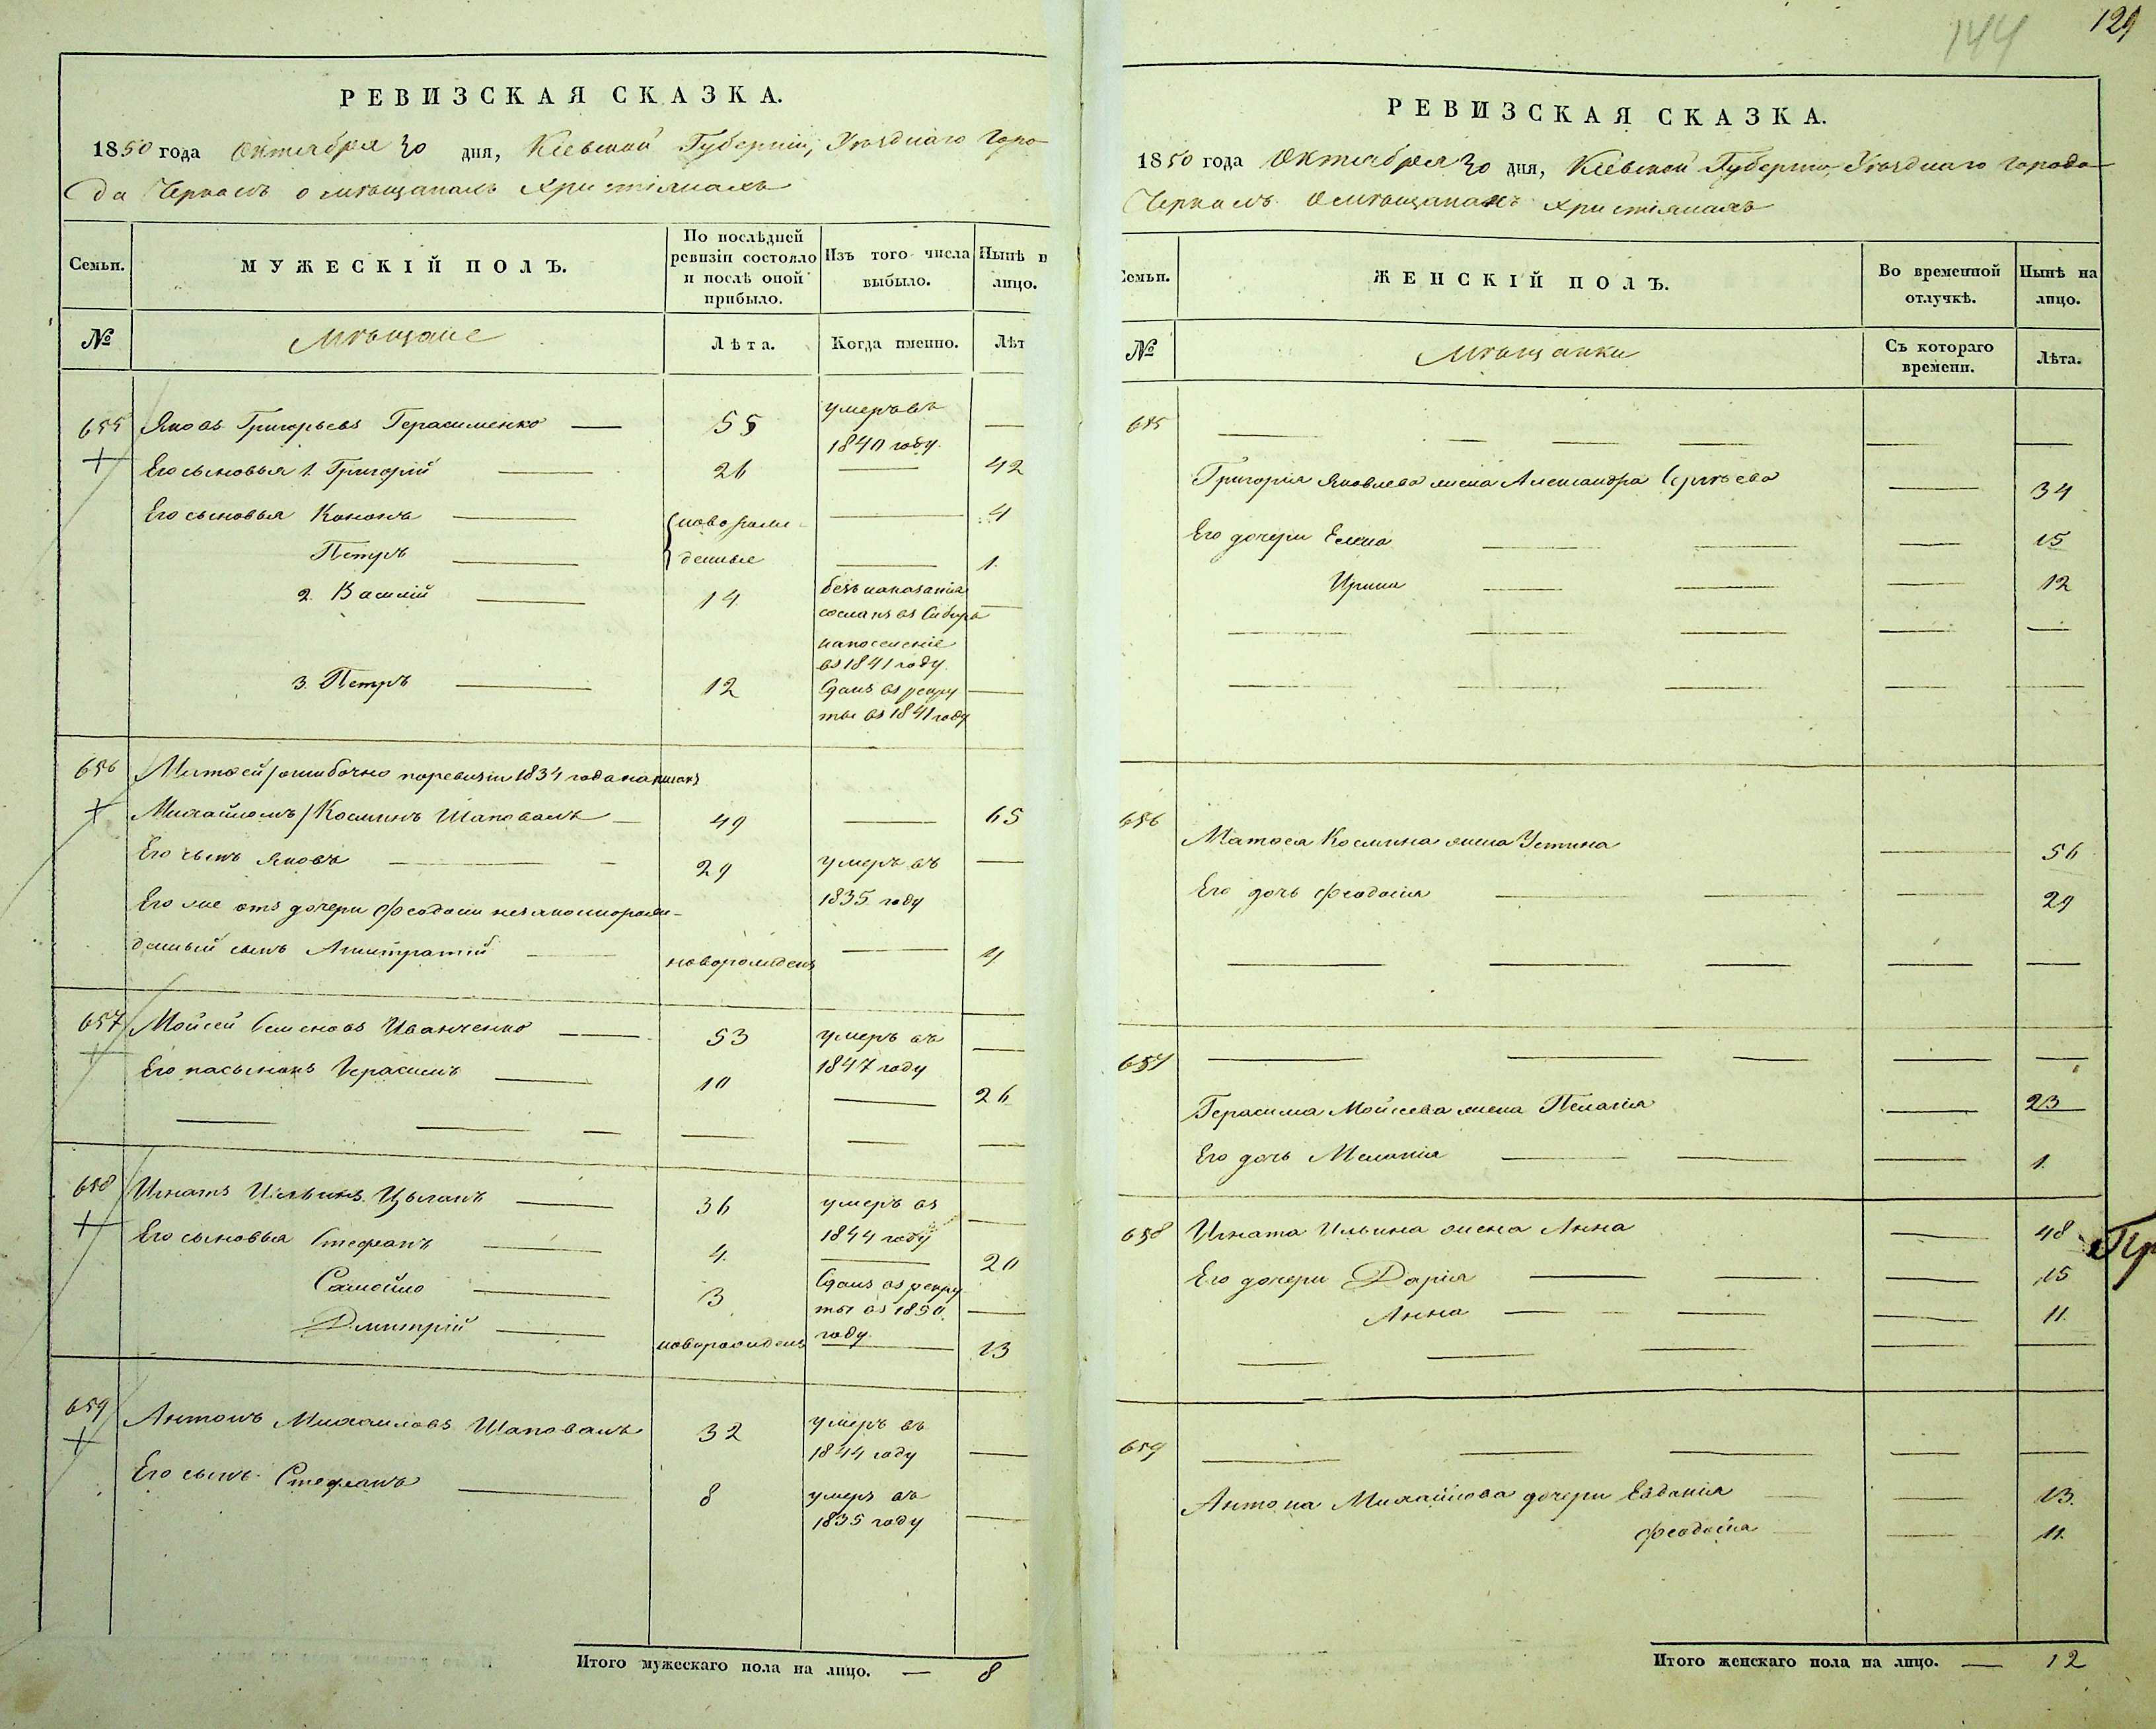 РЕВИЗСКАЯ СКАЗКА.
1850 года Октября 30 дня, Кіевской Губерніи, Уѣзднаго Горо-
да Черкасъ о мѣщанахъ христіянахъ
Семьи.
МУЖЕСКІЙ ПОЛЪ.
По послѣдней ревизіи состояло и послѣ оной прибыло.
Изъ того числа выбыло.
Нынѣ н лицо.
№
Мѣщане
Лѣта.
Когда именно.
Лѣт
655 Яковъ Григорьевъ Герасименко — 55 умеръ въ 1840 году —
Его сыновья 1. Григорій — 26 — 42
Его сыновья Кононъ — новорож- — 4
Петръ — денные — 1.
2. Василій — 14 безъ наказанія сосланъ въ Сибирь на поселеніе въ 1841 году —
3. Петръ — 12 Сданъ въ рекру ты въ 1841 году —
656 Матвей /ошибочно по ревизіи 1834 года написанъ
Михайломъ/ Косминъ Шаповалъ — 49 — 65
Его сынъ Яковъ — 29 умеръ въ 1835 году —
Его же отъ дочери Феодосіи незаконнорож-
денный сынъ — новорожденъ — 4
657 Мойсей Семеновъ Иванченко — 53 умеръ въ 1847 году —
Его пасынокъ Герасимъ — 10 — 26
— — — — — —
658 Игнатъ Ильинъ Цыганъ — 36 умеръ въ 1844 году —
Его сыновья Стефанъ — 4. — 20
Самойло — 3 Сданъ въ рекру ты въ 1850 году. —
Дмитрій — новорожденъ — 13
659 Антонъ Михаиловъ Шаповалъ 32 умеръ въ 1844 году —
Его сынъ Стефанъ — 8 умеръ въ 1835 году —
Итого мужескаго пола на лицо. — 8
144
129
РЕВИЗСКАЯ СКАЗКА.
1850 года Октября 30 дня, Кіевской Губерніи, Уѣзднаго Города
Черкасъ о мѣщанахъ христіянахъ
Семьи.
ЖЕНСКІЙ ПОЛЪ.
Во временной отлучкѣ.
Нынѣ на лицо.
№
Мѣщанки
Съ котораго времени.
Лѣта.
655 — — — — — —
Григорія Яковлева жена Александра Сергѣева — 34
Его дочери Елена — — — 15
Ирина — — — 12
— — — — —
— — — — —
656
Матвея Космина жена Устина — 56
Его дочь Феодосія — — — 29
— — — — —
657 — — — — —
Герасима Мойсеева жена Пелагія — 23
Его дочь Меланія — — — 1.
658 Игната Ильина жена Анна — 48
Пр
Его дочери Дарія — — — 15
Анна — — — 11.
— — — — —
659 — — — — —
Антона Михайлова дочери Евдокія — — 13.
Феодосіа — — 11.
Итого женскаго пола на лицо. — 12